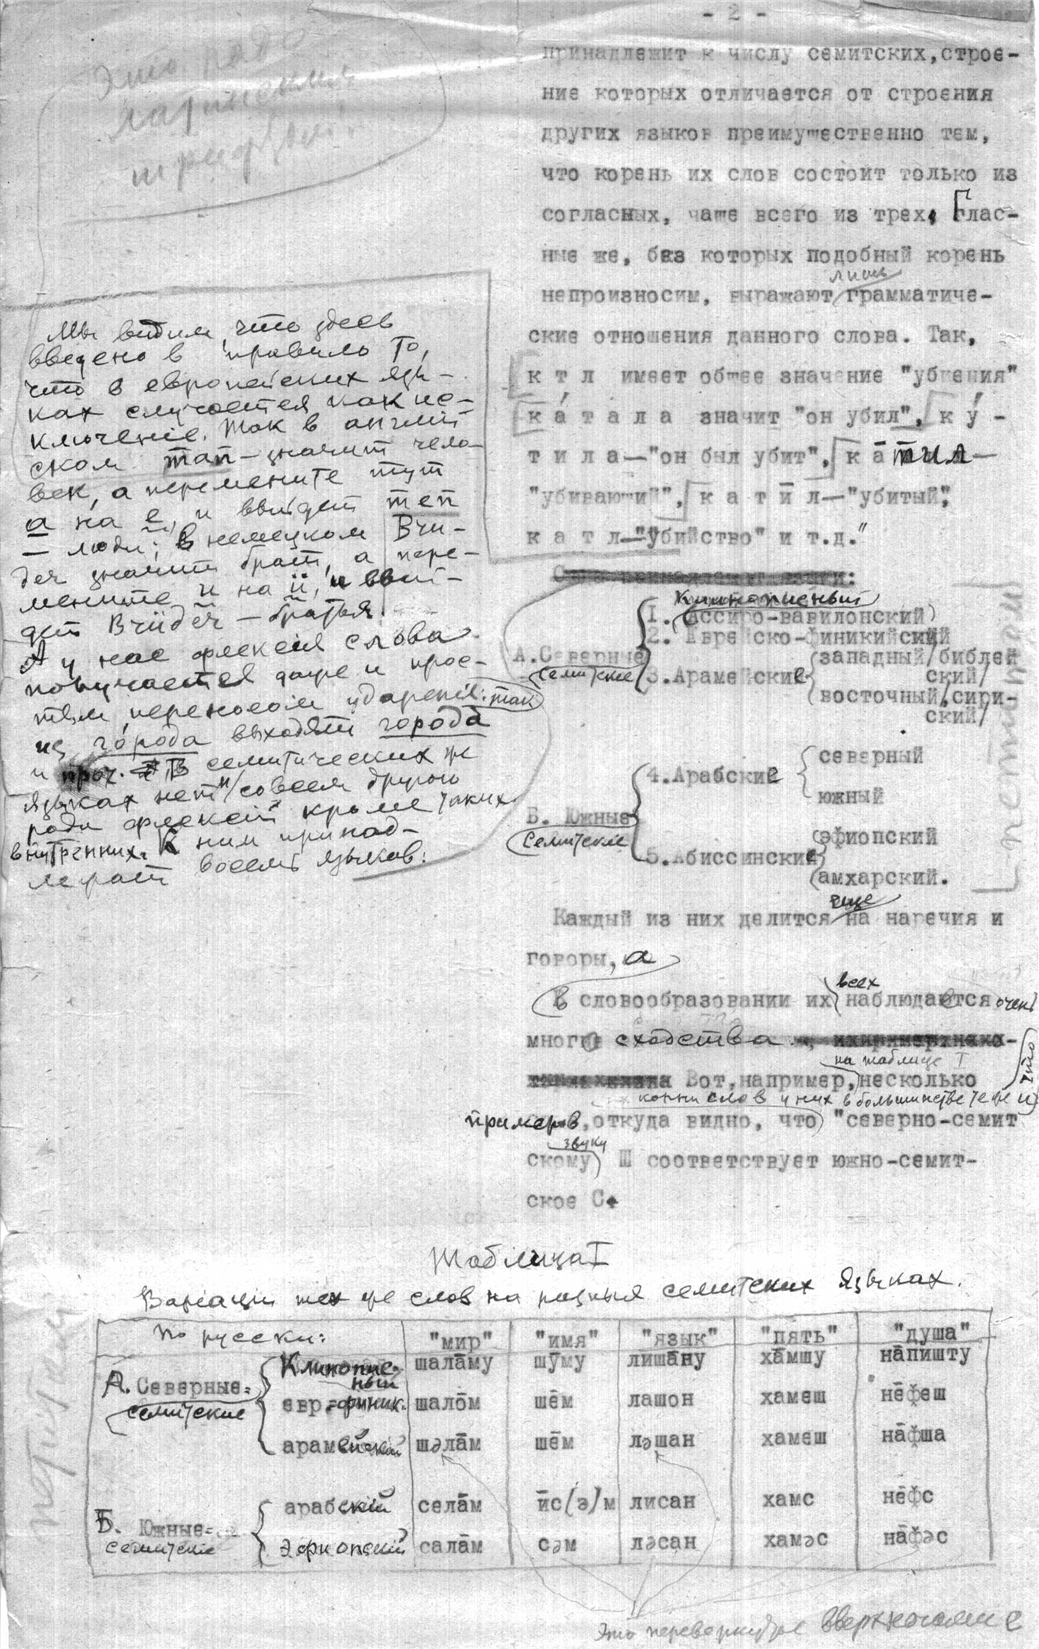 - 2 -
принадлежит к числу семитских, строе-
ние которых отличается от строения
других языков преимущественно тем,
что корень их слов состоит только из
согласных, чаще всего из трех. Глас-
ные же, без которых подобный корень
лишь
непроизносим, выражают грамматиче-
ские отношения данного слова. Так,
к т л имеет общее значение "убиения"
к а́ т а л а значит "он убил", к у́ -
т и л а—"он был убит", к а̄ т и л—
"убивающий", к а т ӣ л—"убитый",
к а т л—"убийство" и т.д."
Это надо
латинским
шрифтом!
Мы видим, что здесь
введено в правило то,
что в европейских язы-
ках случается как ис-
ключение. Так в англий
ском man—значит чело-
век, а перемените тут
a на e, и выйдет men
— люди; в немецком Bru-
der значит брат, а пере-
мените u на ü, и вый-
дет Brüder — братья.
А у нас флексия слова
получается даже и прос-
тым переносом ударения: так
из го́рода выходят города́
и проч. В семитических же
языках нет и совсем другого
рода флексий кроме таких
внутренних. К ним принад-
лежат восемь языков:
А. Северные
семитские
Клинописный
1. (Ассиро-вавилонский)
2. Еврейско-финикийский
3. Арамейский
западный/библей
ский/
восточный/сири-
ский/
Б. Южные
семитские
4. Арабский
северный
южный
5. Абиссинский
эфиопский
амхарский.
петитом
еще
Каждый из них делится на наречия и
говоры, а
всех
в словообразовании их наблюдается очень
много сходства.
на таблице I
Вот, например, несколько
корни слов у них в большинстве те же и что
примеров, откуда видно, что "северно-семит
звуку
скому) Ш соответствует южно-семит-
ское С.
Таблица I
Вариации тех же слов на разных семитских языках.
По русски: "мир" "имя" "язык" "пять" "душа"
А. Северные-
семитские
Клинопис-
ный шала̄му шӯму лиша̄ну ха̄мшу на̄пишту
евр.-финик. шало̄м ше̄м лашон хамеш не̄феш
арамейский шәла̄м ше̄м ләшан хамеш на̄фша
Б. Южные-
семитские
арабский села̄м ӣс(э)м лисан хамс не̄фс
Эфиопский сала̄м сәм ләсан хамәс на̄фәс
петитом
Это перевернутые вверх ногами е